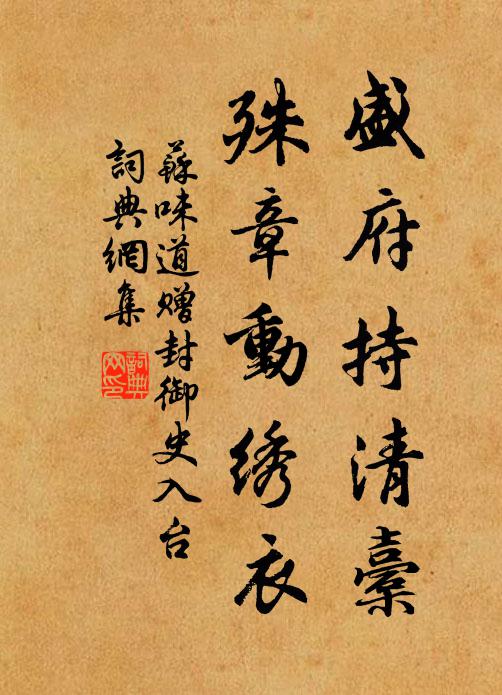 盛府持清橐
殊章動綉衣
蘇味道贈封御史入台
詞典網集
詞典网印